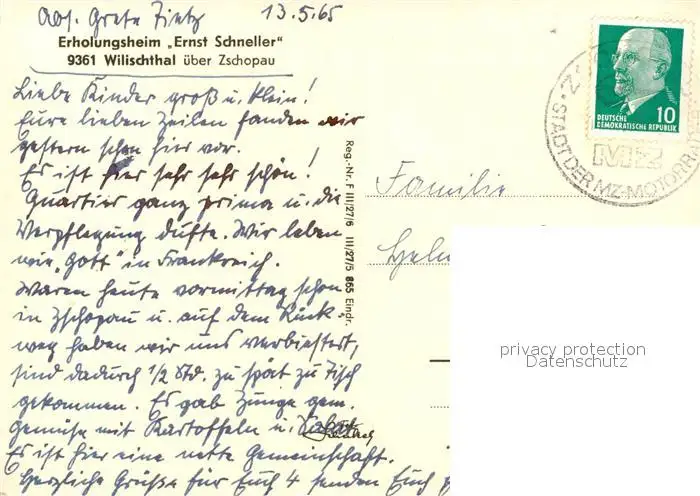 Abs. Grete Zietz 13.5.65
Erholungsheim „Ernst Schneller"
9361 Wilischthal über Zschopau
Liebe Kinder groß u. klein!
Eure lieben Zeilen fanden wir
gestern schon hier vor.
Es ist hier sehr sehr schön!
Quartier ganz prima u. die
Verpflegung dufte. Wir leben
wie „Gott" in Frankreich.
Waren heute vormittag schon
in Zschopau u. auf dem Rück-
weg haben wir uns verbiestert,
sind dadurch 1/2 Std. zu spät zu Tisch
gekommen. Es gab Zunge gem.
Gemüse mit Kartoffeln u.
Es ist hier eine nette Gemeinschaft.
Herzliche Grüße für Euch 4 senden Euch
Reg.-Nr. F III/27/6 III/27/5 865 Eindr.
Familie
DEUTSCHE
DEMOKRATISCHE REPUBLIK
10
STADT DER MZ-MOTORRÄDER
MZ
privacy protection
Datenschutz